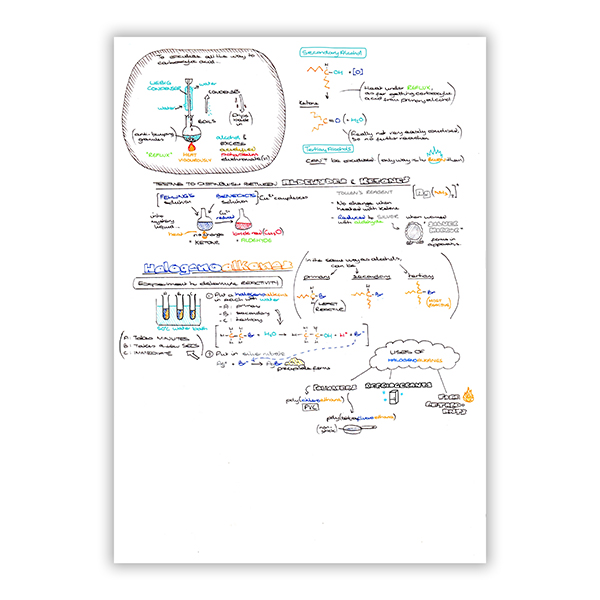 To oxidise all the way to
carboxylic acid...
LIEBIG
CONDENSER
water
water
CONDENSES
BOILS
Drips
back in
(anti-bumping
granules)
"REFLUX"
HEAT
VIGOROUSLY
alcohol &
EXCESS
acidified
dichromate(vi)
Secondary Alcohol
OH + [O]
Heat under REFLUX,
as for getting carboxylic
acid from primary alcohol
Ketone
C=O (+ H₂O)
(Really not very easily oxidised,
so no further reaction)
Tertiary Alcohols
CAN'T be oxidised (only way is by combustion)
TESTING TO DISTINGUISH BETWEEN ALDEHYDES & KETONES
FEHLING'S
solution
BENEDICT'S
solution
Cu²⁺ complexes
into
mystery
liquid...
heat
no change
∴ KETONE
Cu²⁺
reduced
brick-red (Cu₂O)
∴ ALDEHYDE
TOLLEN'S REAGENT
[Ag(NH₃)₂]⁺
- No change when
heated with ketone
- Reduced to SILVER
with aldehyde
when warmed
"SILVER
MIRROR"
forms in
apparatus
Halogenoalkanes
Experiment to determine REACTIVITY
① Put a halogenoalkane
in each with water
- A: primary
- B: secondary
- C: tertiary
50°C water bath
A: TAKES MINUTES
B: TAKES A FEW SECS
C: IMMEDIATE
+ H₂O →
+ H⁺ + Br⁻
② Put in silver nitrate
Ag⁺ + Br⁻ → AgBr
precipitate forms
In the same way as alcohols,
can be...
primary
secondary
tertiary
LEAST
REACTIVE
MOST
REACTIVE
USES OF
HALOGENOALKANES
POLYMERS
REFRIGERANTS
FIRE
RETARD-
ANTS
poly(chloroethene)
PVC
poly(tetrafluoroethene)
(non-
stick)